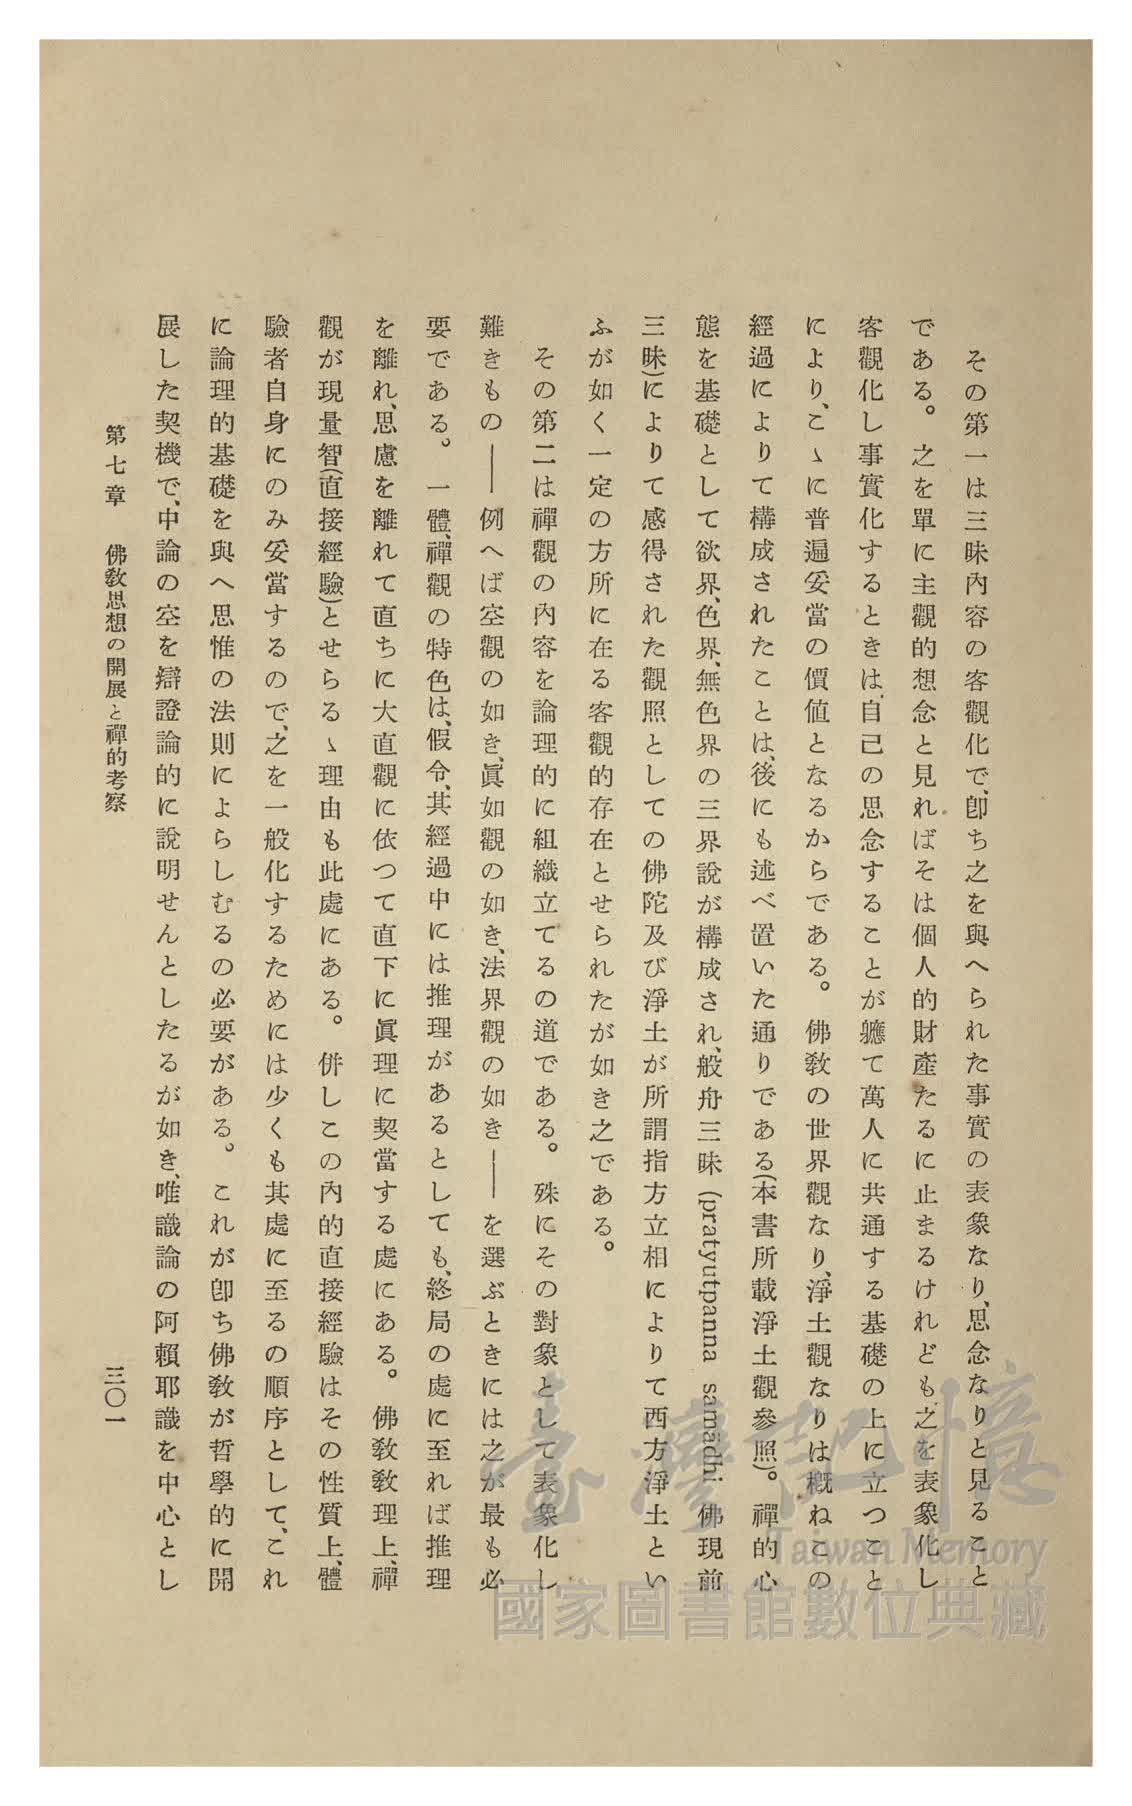 その第一は三昧內容の客觀化で、卽ち之を與へられた事實の表象なり、思念なりと見ること
である。之を單に主觀的想念と見ればそは個人的財產たるに止まるけれども之を表象化し
客觀化し事實化するときは、自己の思念することが軈て萬人に共通する基礎の上に立つこと
により、こゝに普遍妥當の價値となるからである。佛敎の世界觀なり、淨土觀なりは概ねこの
經過によりて構成されたことは、後にも述べ置いた通りである(本書所載淨土觀參照)。禪的心
態を基礎として欲界、色界、無色界の三界說が構成され、般舟三昧(pratyutpanna samādhi 佛現前
三昧)によりて感得された觀照としての佛陀及び淨土が所謂指方立相によりて西方淨土とい
ふが如く一定の方所に在る客觀的存在とせられたが如き之である。
その第二は禪觀の內容を論理的に組織立てるの道である。殊にその對象として表象化し
難きもの――例へば空觀の如き、眞如觀の如き、法界觀の如き――を選ぶときには之が最も必
要である。一體、禪觀の特色は、假令、其經過中には推理があるとしても、終局の處に至れば推理
を離れ、思慮を離れて直ちに大直觀に依つて直下に眞理に契當する處にある。佛敎敎理上、禪
觀が現量智(直接經驗)とせらるゝ理由も此處にある。併しこの內的直接經驗はその性質上、體
驗者自身にのみ妥當するので、之を一般化するためには少くも其處に至るの順序として、これ
に論理的基礎を與へ思惟の法則によらしむるの必要がある。これが卽ち佛敎が哲學的に開
展した契機で、中論の空を辯證論的に說明せんとしたるが如き、唯識論の阿賴耶識を中心とし
第七章 佛敎思想の開展と禪的考察 三〇一
臺灣記憶
Taiwan Memory
國家圖書館數位典藏